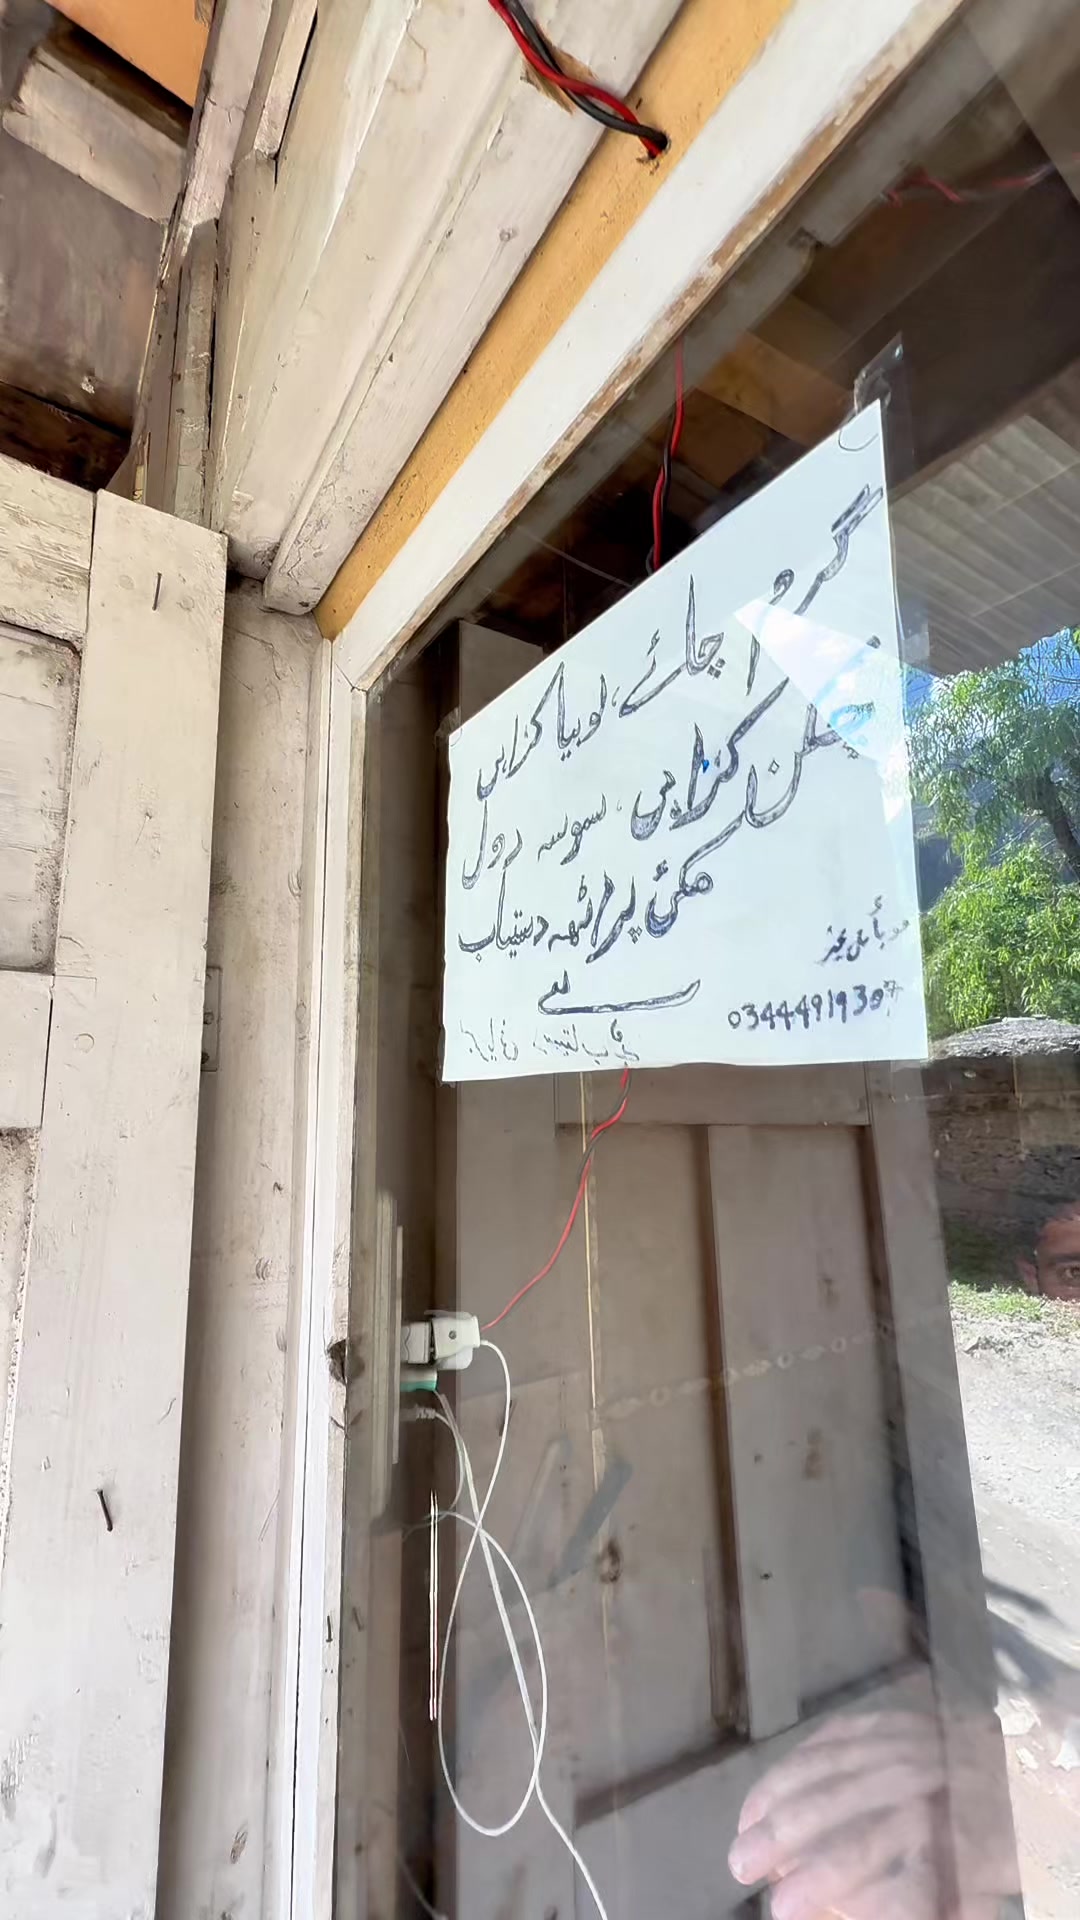 گرم چائے، لوبیا کڑاہی
چکن کڑاہی، سموسہ رول
مکئ پراٹھہ دستیاب
ہے
موبائل نمبر
03444919307